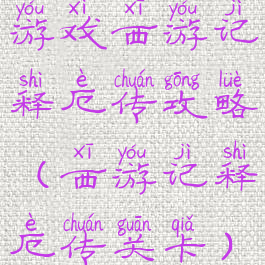 yóu xì xī yóu jì
游戏西游记
shì è chuán gōng lüè
释厄传攻略
xī yóu jì shì
（西游记释
è chuán guān qiǎ
厄传关卡）